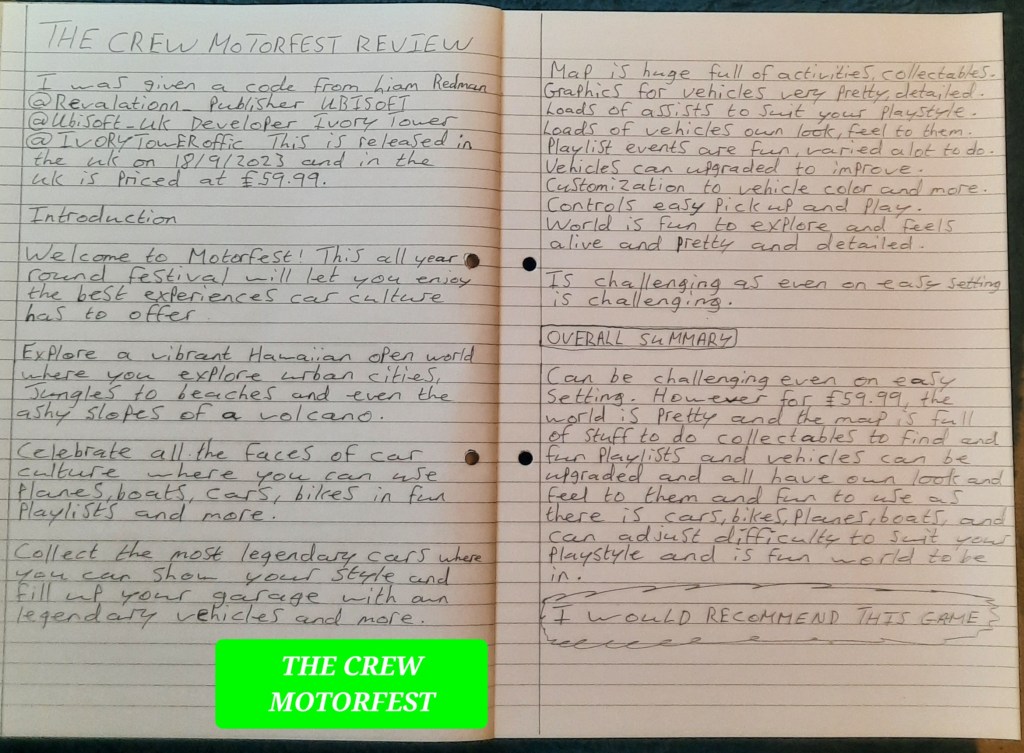 THE CREW MOTORFEST REVIEW
I was given a code from Liam Redman
@Revalationn_ Publisher UBISOFT
@Ubisoft_UK Developer Ivory Tower
@IVORYTOWERoffic This is released in
the uk on 18/9/2023 and in the
uk is priced at £59.99.
Introduction
Welcome to Motorfest! This all year
round festival will let you enjoy
the best experiences car culture
has to offer.
Explore a vibrant Hawaiian open world
where you explore urban cities,
Jungles to beaches and even the
ashy slopes of a volcano.
Celebrate all the faces of car
culture where you can use
planes, boats, cars, bikes in fun
playlists and more.
Collect the most legendary cars where
you can show your style and
fill up your garage with own
legendary vehicles and more.
Map is huge full of activities, collectables.
Graphics for vehicles very pretty, detailed.
Loads of assists to suit your playstyle.
Loads of vehicles own look, feel to them.
Playlist events are fun, varied alot to do.
Vehicles can upgraded to improve.
Customization to vehicle color and more.
Controls easy pick up and play.
World is fun to explore and feels
alive and pretty and detailed.
Is challenging as even on easy setting
is challenging.
OVERALL SUMMARY
Can be challenging even on easy
setting. However for £59.99, the
world is pretty and the map is full
of stuff to do collectables to find and
fun playlists and vehicles can be
upgraded and all have own look and
feel to them and fun to use as
there is cars, bikes, planes, boats, and
can adjust difficulty to suit your
playstyle and is fun world to be
in.
I WOULD RECOMMEND THIS GAME
THE CREW
MOTORFEST